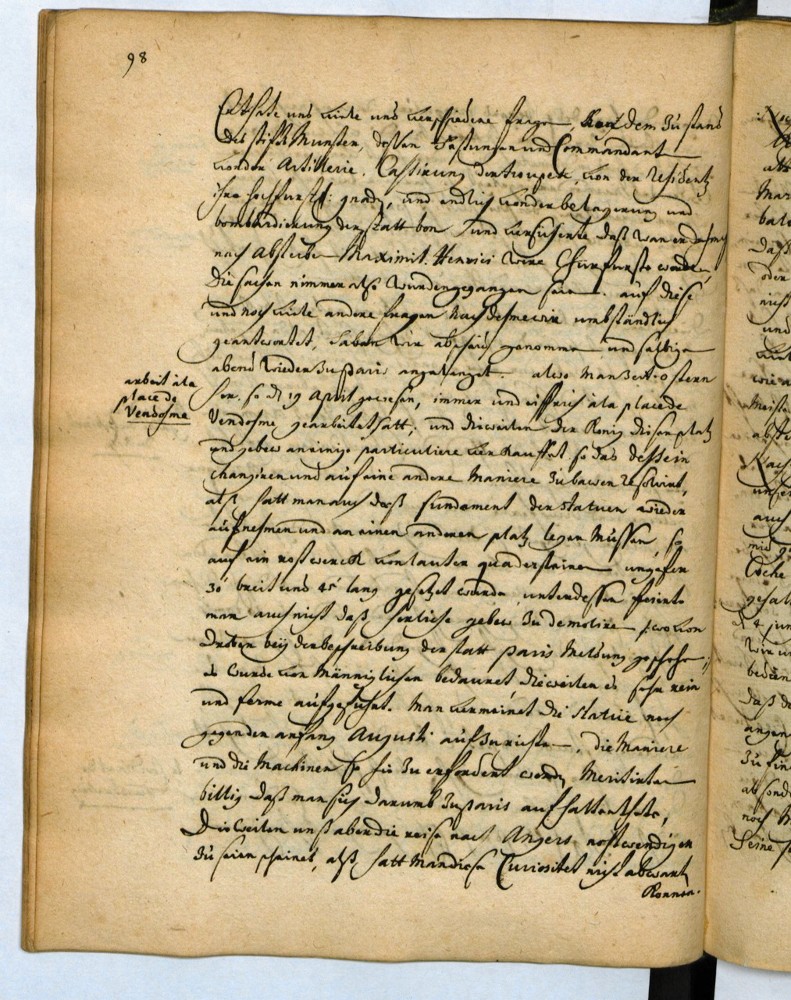 98
thate uns viele und verschiedene fragen, nach dem Zustand
des stiffts Munster, dessen Vestungen und Commendant
von der Artillerie, Cassirung der troupen, von der Residentz
ihro hochfurstl: gnad, und endlich von der belagerung und
bombardierung der statt bon und versicherte daß wan er
nach absterben Maximil. Henrici were Churfurst worden
die sachen nimmer also wurden gegangen sein. auf diese
und noch viele andere fragen nach deme wir umbständlich
geantwortet, haben wir abscheid genommen und selbigen
abend wieder zu paris angelanget. also man zeit ostern
arbeit à la
place de
Vendosme
her, so d 19 April gewesen, immer und eiffrich à la place de
Vendosme gearbeitet hatt; und dieweilen der Konig diesen platz
und gebew an einige particuliere verkaufft so das dessein
changiren und auf eine andere Maniere zu bawen resolvirt,
alß hatt man auch daß fundament der statuen wieder
aufnehmen und an einen anderen platz legen müssen so
auf ein rostwerck von lauter quadersteinen ungefehr
30' breit und 45' lang gesetzet worden, unterdessen feirete
man auch nicht daß herliche gebew zu demoliren wovon
droben bey der beschreibung der statt paris Meldung geschehen;
es wurde von männiglichen bedauret dieweilen es sehr rein
und ferme aufgefuhrt. Man vermeinet die statüe noch
gegen den anfang Augusti aufzurichten, die Maniere
und die Machinen so hie zu erfordert werden Meritirten
billig daß man sich darumb zu paris aufhalten thete,
Dieweilen unß aber die reise nach Angers nothwendiger
zu seien scheinet, alß hatt man diese Curiositet nicht abwarten
Konnen.